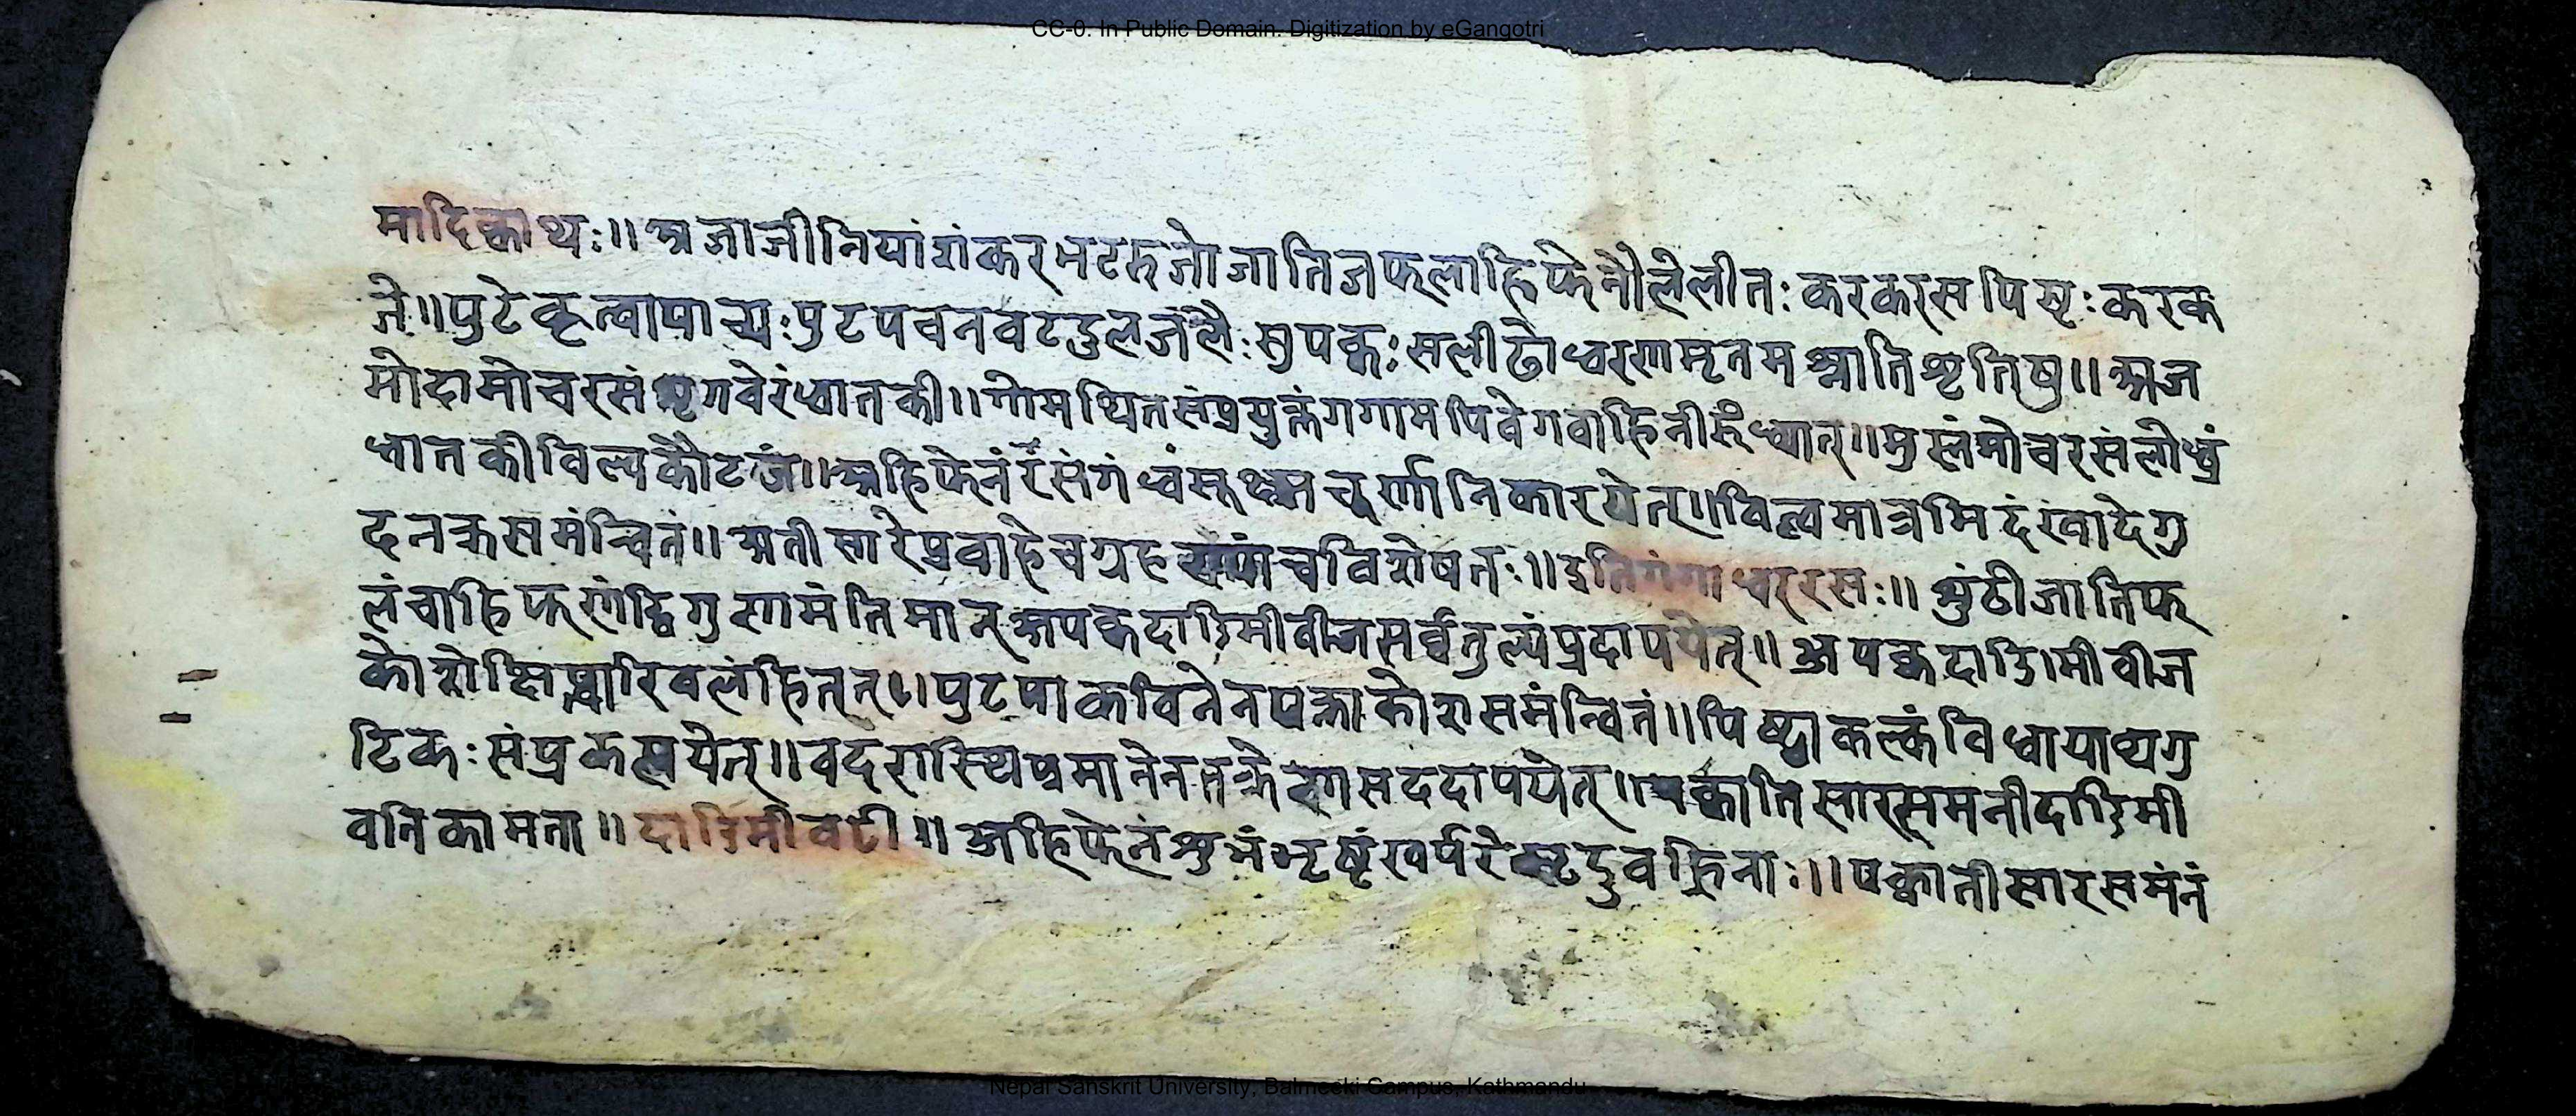 CC-0. In Public Domain. Digitization by eGangotri
मादिक्वाथः॥ अजाजीनियांशंकरभटरुजोजातिजफलाहिफेनौलेलीतः करकरसपिसृः करक
जे॥ पुटेकृत्वापाच्यः पुटपचनवटडुलजलैः सुपक्वः सलीढोध्वरणामृतमश्नातिशृतिषु॥ अज
मोदामोचरसंशृगवेरंधातकी॥ गोमथितसंप्रयुक्तंगगामपिवेगवाहिनीरुंध्यात्॥ मुस्तंमोचरसंलोध्रं
धातकीविल्वकौटजं॥ अहिफेनंरसंगंध्वंसूक्ष्मचूर्णानिकारयेत्॥ विल्वमात्रमिदंखादेगु
दनक्रसमंन्वितं॥ अतीसारेप्रवाहेचग्रह चविशेषतः॥ इतिगंगाधररसः॥ शुंठीजातिफ
लंचाहिफणंद्विगुणामंतिमान् अपक्वदाडिमीवीजसर्वतुल्यंप्रदापयेत्॥ अपक्वदाडिमीवीज
कोशेक्षिप्त्वारिवलंहितत्॥ पुटपाकविनेनपक्त्वाकोशसमंन्वितं॥ पिष्ट्वाकल्कंविधायाथगु
टिकः संप्रकल्पयेत्॥ वदरास्थिप्रमानेनतक्रे सददापयेत्॥ पक्वातिसारसमनीदाडिमी
वतिकामता॥ दाडिमीवटी॥ अहिफेनंशुभंभृष्टंखर्परे वह्निनाः॥ पक्वातीसारसमंनं
Nepal Sanskrit University, Balmeeki Campus, Kathmandu